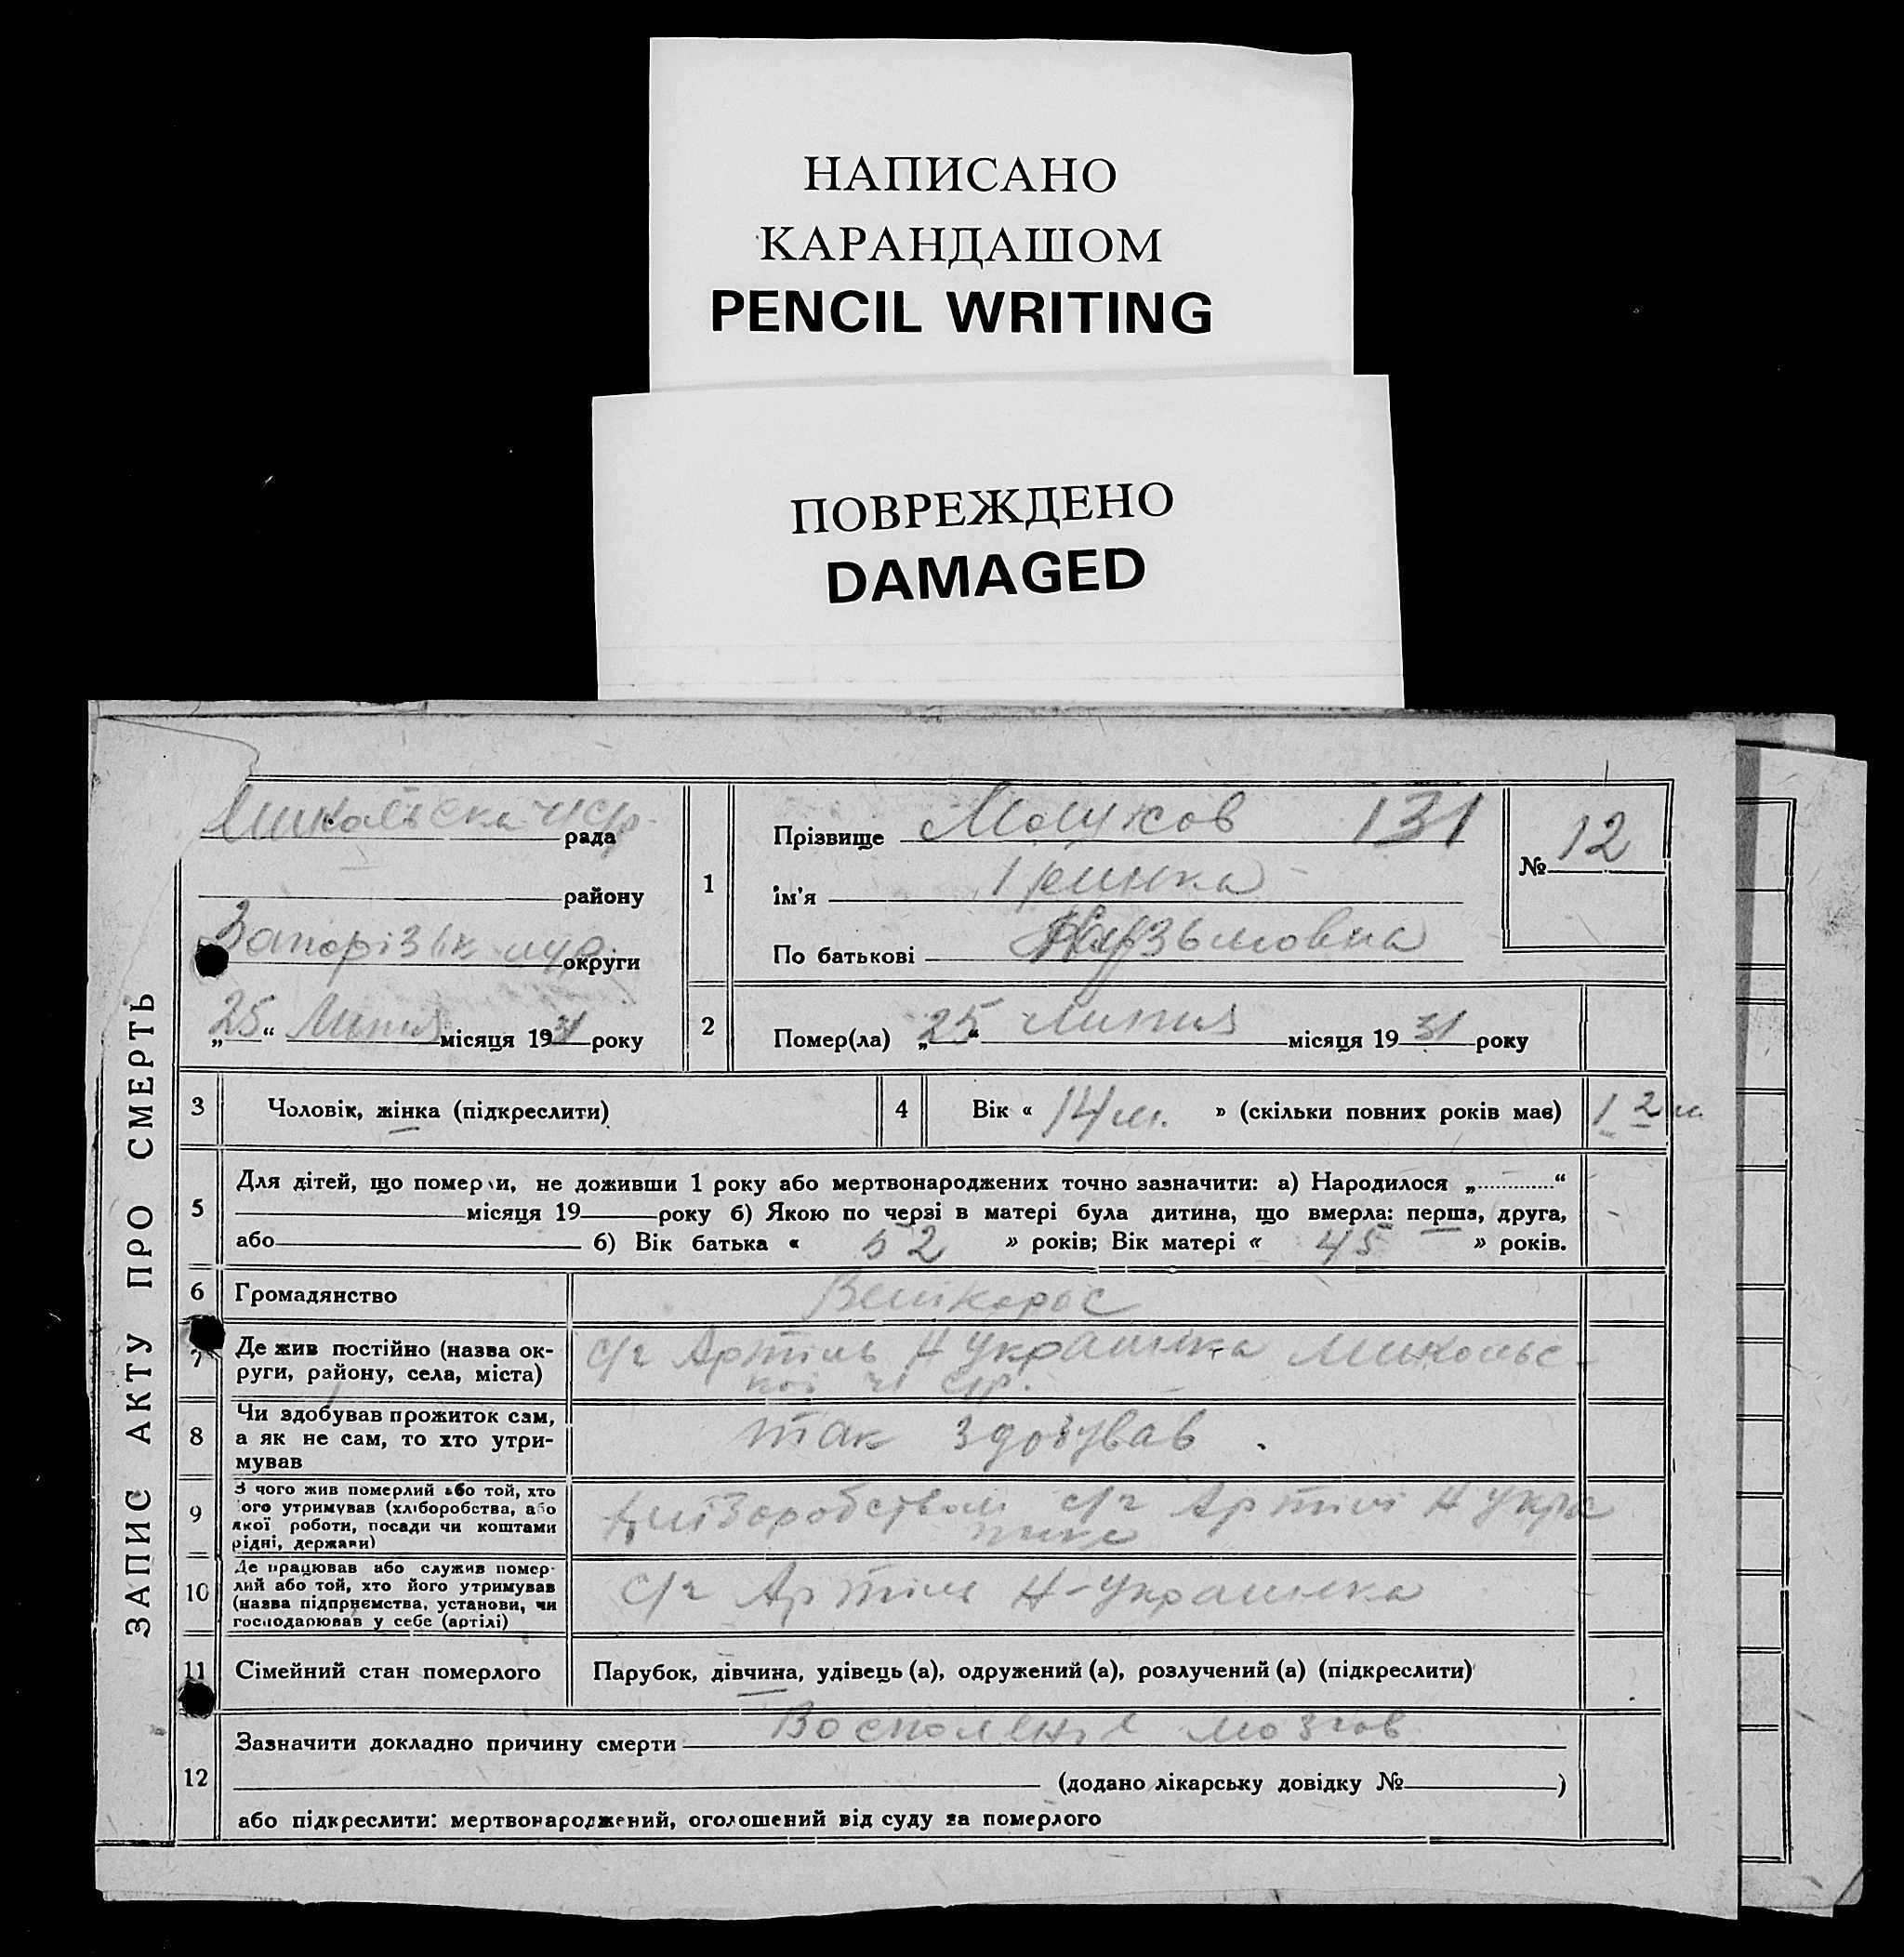 НАПИСАНО
КАРАНДАШОМ
PENCIL WRITING
ПОВРЕЖДЕНО
DAMAGED
ЗАПИС АКТУ ПРО СМЕРТЬ
рада
району
Запорізьк округи
„25“ Липня місяця 1931 року
1
Прізвище 131
ім'я
По батькові Кузьмовна
№ 12
2
Помер(ла) „25“ липня місяця 1931 року
3
Чоловік, жінка (підкреслити)
4
Вік « 14 м. » (скільки повних років має)
1 2 м.
5
Для дітей, що померли, не доживши 1 року або мертвонароджених точно зазначити: а) Народилося „............“
місяця 19 року б) Якою по черзі в матері була дитина, що вмерла: перша, друга,
або б) Вік батька « 52 » років; Вік матері « 45 » років.
6
Громадянство
Великорос
7
Де жив постійно (назва ок-
руги, району, села, міста)
с/г Артіль Н Украинка Микольс-
кої
8
Чи здобував прожиток сам,
а як не сам, то хто утри-
мував
так здобував.
9
З чого жив померлий або той, хто
ого утримував (хліборобства, або
якої роботи, посади чи коштами
рідні, держави)
с/г Артілі Н Укра
10
Де працював або служив помер-
лий або той, хто його утримував
(назва підприємства, установи, чи
господарював у себе (артілі)
с/г Артіль Н-Украинка
11
Сімейний стан померлого
Парубок, дівчина, удівець (а), одружений (а), розлучений (а) (підкреслити)
12
Зазначити докладно причину смерти Воспаление мозгов
(додано лікарську довідку № )
або підкреслити: мертвонароджений, оголошений від суду за померлого